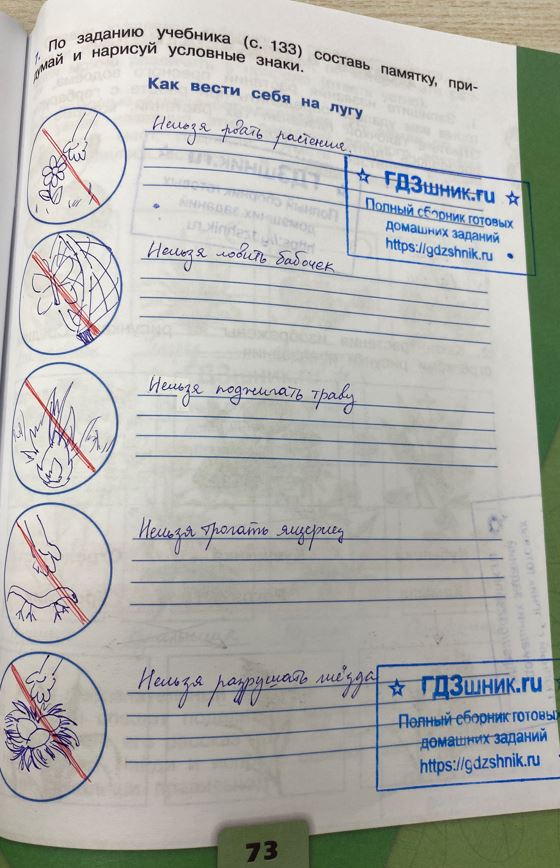 1. По заданию учебника (с. 133) составь памятку, при-
думай и нарисуй условные знаки.
Как вести себя на лугу
Нельзя рвать растение.
☆ ГДЗшник.ru ☆
Полный сборник готовых
домашних заданий
https://gdzshnik.ru
Нельзя ловить бабочек
Нельзя поджигать траву
Нельзя трогать ящериц
Нельзя разрушать гнёзда
☆ ГДЗшник.ru
Полный сборник готовы
домашних заданий
https://gdzshnik.ru
73